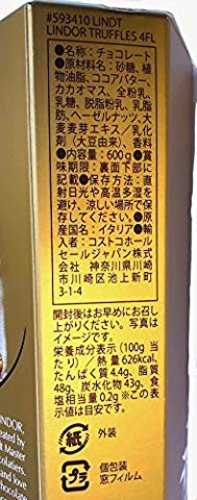 #593410 LINDT
LINDOR TRUFFLES 4FL
●名称：チョコレート
●原材料名：砂糖、植
物油脂、ココアバター、
カカオマス、全粉乳、
乳糖、脱脂粉乳、乳脂
肪、ヘーゼルナッツ、大
麦麦芽エキス／乳化
剤（大豆由来）、香料
●内容量：600g●賞
味期限：裏面下部に
記載●保存方法：直
射日光や高温多湿を
避け、涼しい場所で保
存してください。●原
産国名：イタリア●輸
入者：コストコホール
セールジャパン株式会
社　神奈川県川崎
市川崎区池上新町
3-1-4
開封後はお早めにお召し
上がりください。写真はイ
メージです。
栄養成分表示（100g当
たり）／熱量626kcal、
たんぱく質4.4g、脂質
48g、炭水化物43g、食
塩相当量0.2g ＊この表
示値は目安です。
紙 外装
プラ 個包装
窓フィルム
INDOR,
eated by
t Master
colatiers,
and love
chocolate